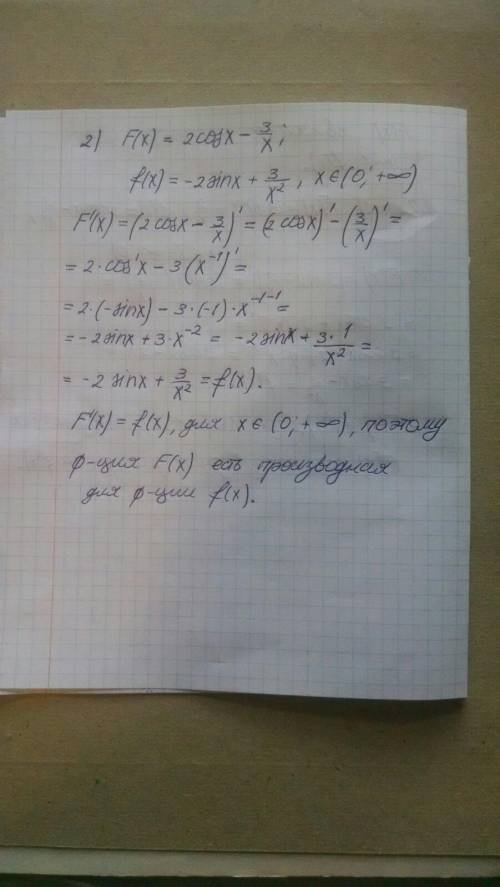 2) F(x) = 2cosx - 3/x;
f(x) = -2sinx + 3/x², x ∈ (0; +∞)
F'(x) = (2cosx - 3/x)' = (2cosx)' - (3/x)' =
= 2·cos'x - 3(x⁻¹)' =
= 2·(-sinx) - 3·(-1)·x⁻¹⁻¹ =
= -2sinx + 3·x⁻² = -2sinx + 3·1/x² =
= -2sinx + 3/x² = f(x).
F'(x) = f(x), для x ∈ (0; +∞), поэтому
ф-ция F(x) есть производная
для ф-ции f(x).